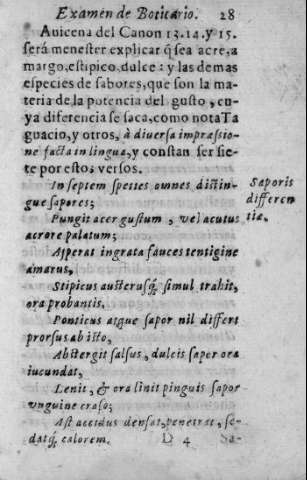 Examen de Boticario. 28
Auicena del Canon 13.14. y 15.
será menester explicar q̃ sea acre, a
margo, estipico, dulce: y las demas
especies de sabores, que son la ma-
teria de la potencia del gusto, cu-
ya diferencia se saca, como nota Ta
guacio, y otros, à diuersa impræssio-
ne facta in lingua, y constan ser sie-
te por estos versos.
In septem species omnes distin-
gue sapores;
Saporis
differen
tiæ.
Pungit acer gustum, vel acutus
acrore palatum;
Asperat ingrata fauces tentigine
amarus,
Stipicus austerusq́; simul trahit,
ora probantis,
Ponticus atque sapor nil differt
prorsus ab isto,
Abstergit salsus, dulcis saper ora
iucundat,
Lenit, & ora linit pinguis sapor
vnguine craso;
Ast accidus densat, penetrat, se-
datq́; calorem. D 4 Sa-